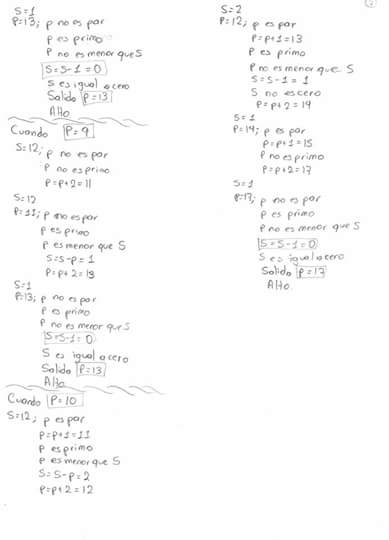 S=1
P=13; p no es par
p es primo
P no es menor que S
S=S-1=0
S es igual a cero
Salida P=13
Alto
Cuando P=9
S=12; p no es par
P no es primo
P=P+2=11
S=12
P=11; p no es par
p es primo
p es menor que S
S=S-p=1
P=P+2=13
S=1
P=13; p no es par
P es primo
P no es menor que S
S=S-1=0
S es igual a cero
Salida P=13
Alto
Cuando P=10
S=12; p es par
P=P+1=11
P es primo
P es menor que S
S=S-P=2
P=P+2=12
S=2
P=12; p es par
P=P+1=13
P es primo
P no es menor que S
S=S-1=1
S no es cero
P=P+2=14
S=1
P=14; p es par
P=P+1=15
P no es primo
P=P+2=17
S=1
P=17; p no es par
P es primo
P no es menor que S
S=S-1=0
S es igual a cero
Salida P=17
Alto.